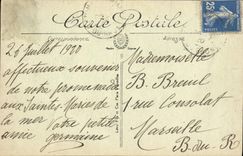 Carte Postale
25
26 Juillet 1920
Mademoiselle
affectueux souvenir
B. Breuil
de notre promenade
1 rue Consolat
aux Saintes Maries de
la mer Votre petite
Marseille
amie
germaine
B. du R.